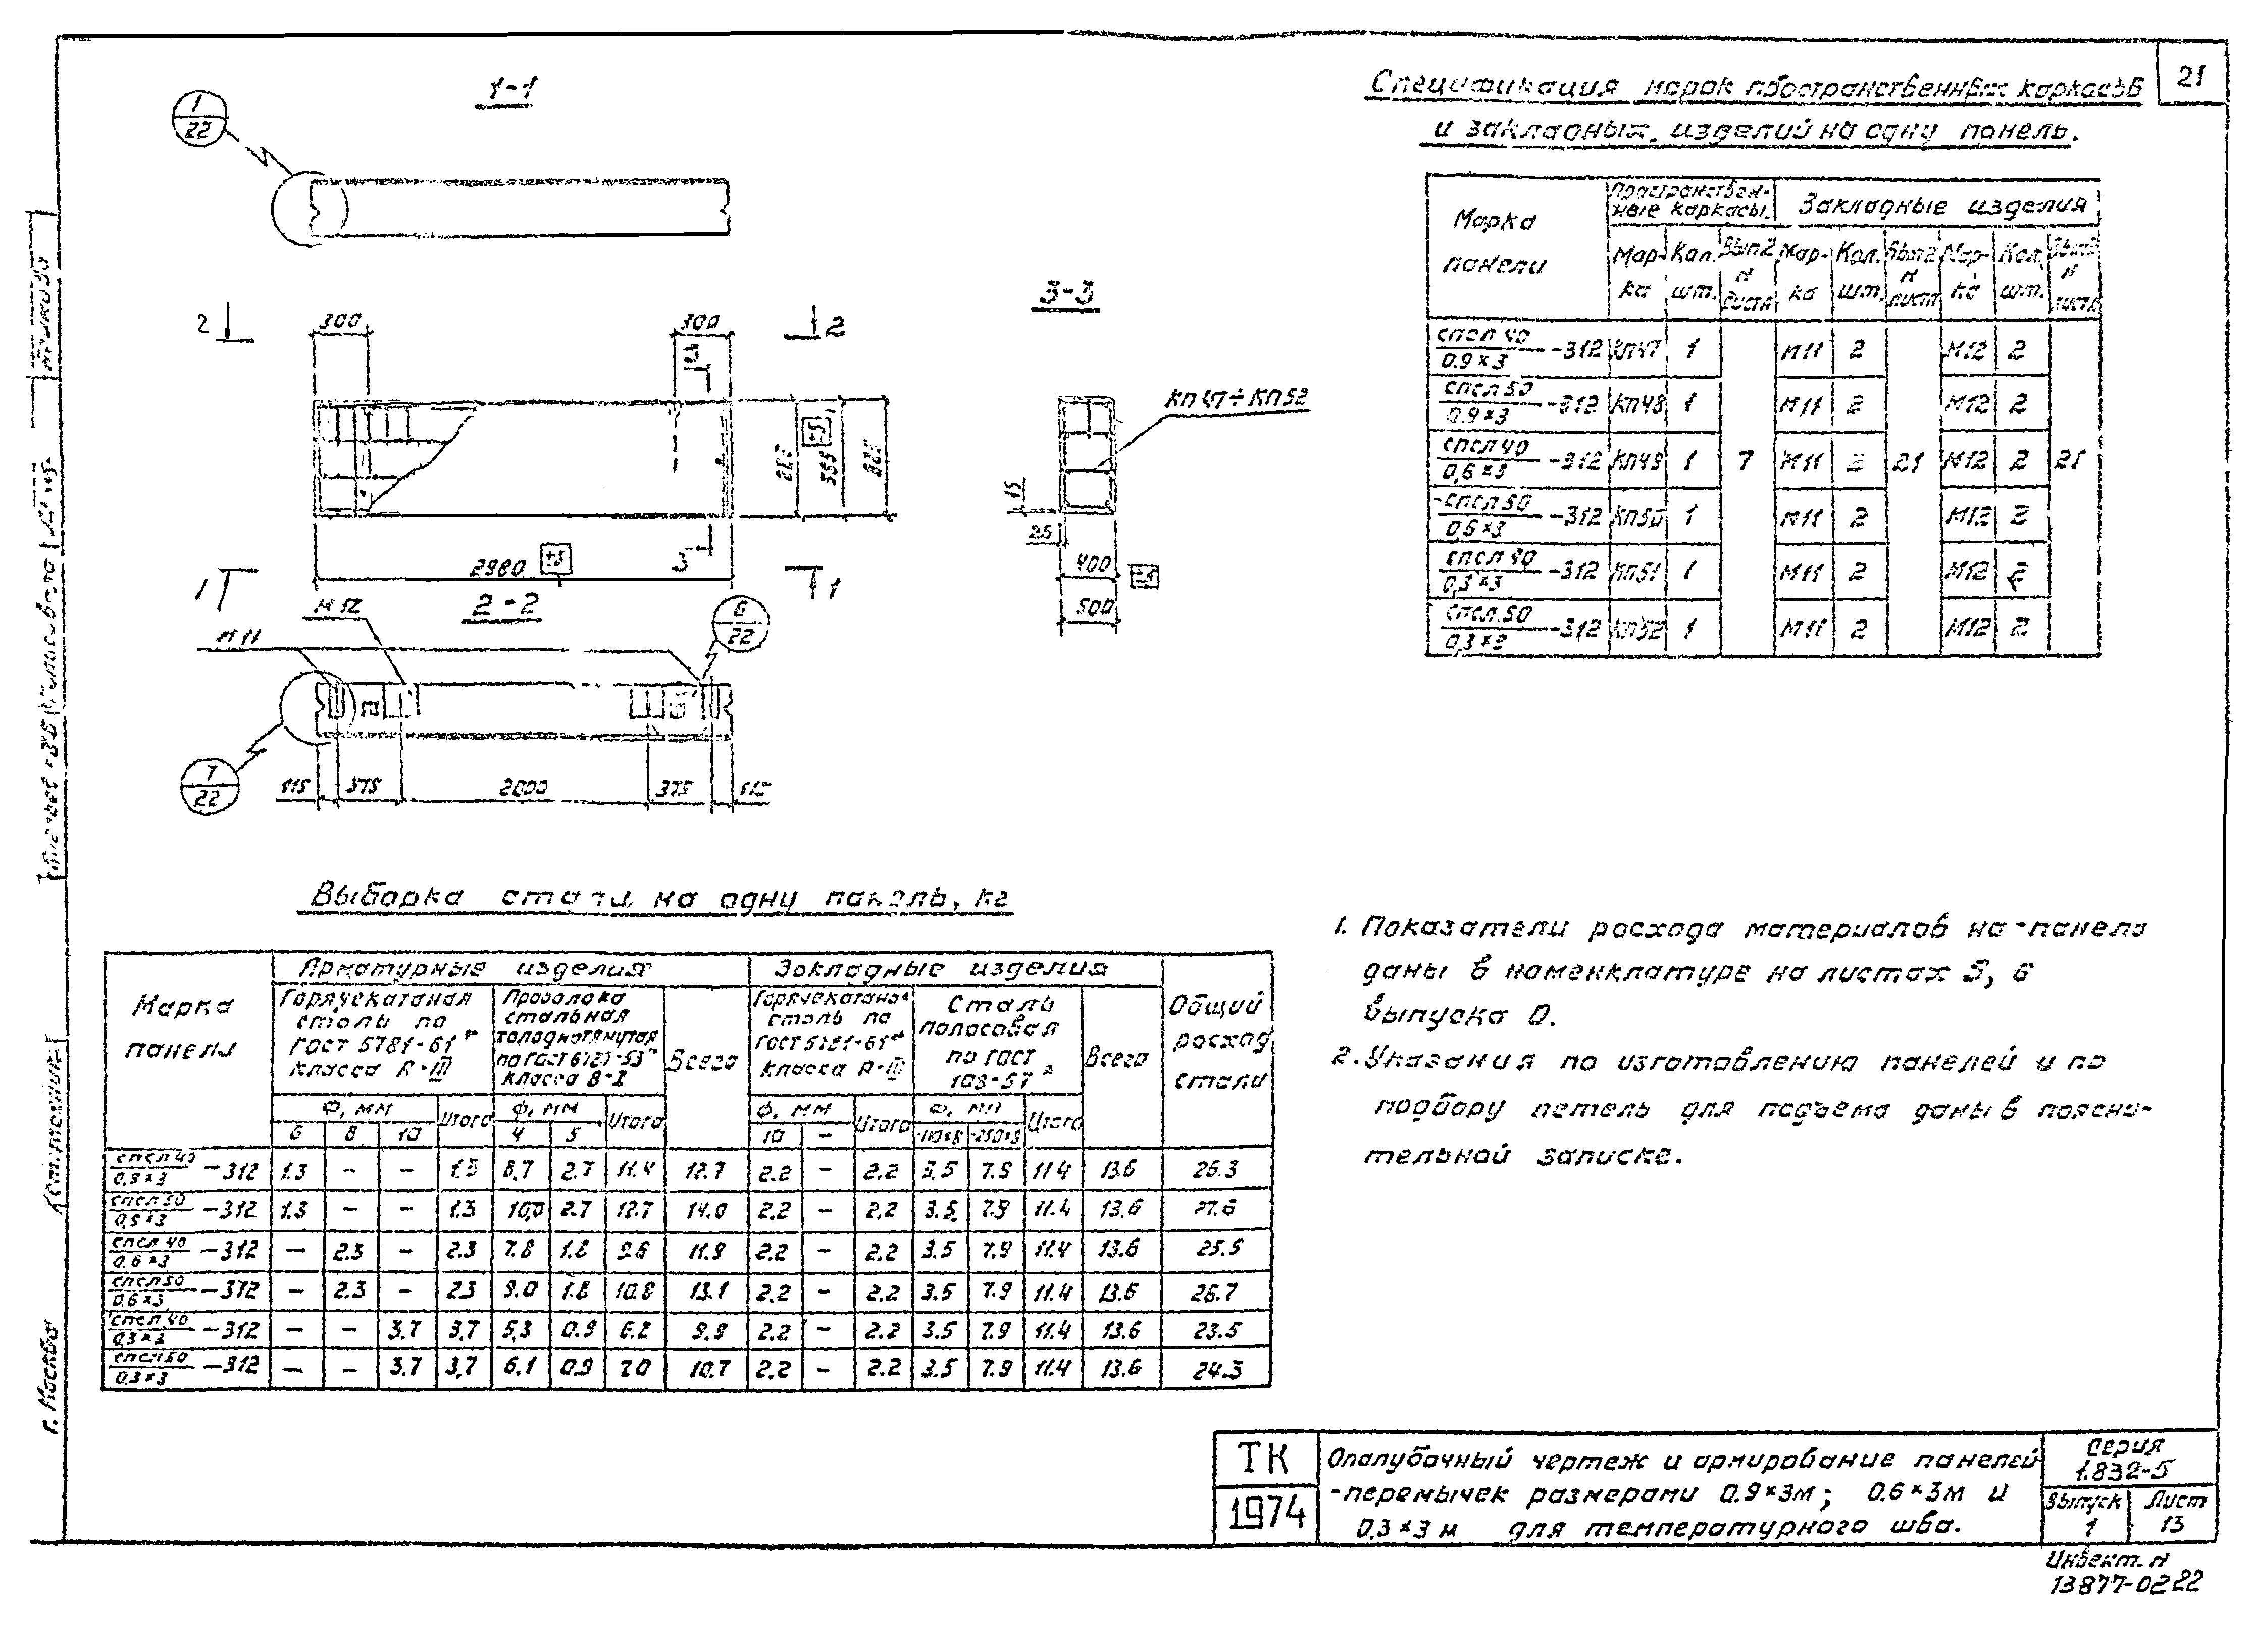 21
Спецификация марок пространственных каркасов
и закладных изделий на одну панель.
1-1
1
22
Марка
панели
Пространствен-
ные каркасы.
Закладные изделия
Мар-
ка
Кол.
шт.
Вып2
N
листа
Мар-
ка
Кол.
шт.
Вып2
N
лист
Мар-
ка
Кол.
шт.
Вып2
N
листа
спсл 40
0.9×3
-312 КП47 1 М11 2 М12 2
спсл 50
0.9×3
-312 КП48 1 М11 2 М12 2
спсл 40
0,6×3
-312 КП49 1 7 М11 2 21 М12 2 21
спсл.50
0,6×3
-312 КП50 1 М11 2 М12 2
спсл 40
0,3×3
-312 КП51 1 М11 2 М12 2
спсл.50
-312 КП52 1 М11 2 М12 2
2 300 300 2
3
±5
385
2980 ±5
3
1 1
3-3
КП47÷КП52
15
25
400
500
2-2
М12
М11
6
22
7
22
115 375 2000 375 115
Выборка стали на одну панель, кг
Марка
панели
Арматурные изделия
Закладные изделия
Общий
расход
стали
Горячекатаная
сталь по
ГОСТ 5781-61*
класса А-III
Проволока
стальная
холоднотянутая
по ГОСТ 6727-53*
класса В-I
Всего
Горячекатаная
сталь по
ГОСТ 5781-61*
класса А-III
Сталь
полосовая
по ГОСТ
103-57*
Всего
Ф, мм Итого Ф, мм Итого Ф, мм Итого Ф, мм Итого
6 8 10 4 5 10 – -110×8 -250×8
спсл 40
0.9×3
-312 1.3 – – 1.3 8,7 2.7 11.4 12.7 2.2 – 2.2 3.5 7.9 11.4 13.6 26.3
спсл 50
-312 1.3 – – 1.3 10,0 2.7 12.7 14.0 2.2 – 2.2 3.5 7.9 11.4 13.6 27.6
спсл 40
0.6×3
-312 – 2.3 – 2.3 7.8 1.8 9.6 11.9 2.2 – 2.2 3.5 7.9 11.4 13.6 25.5
спсл 50
0.6×3
-312 – 2.3 – 2.3 9.0 1.8 10.8 13.1 2.2 – 2.2 3.5 7.9 11.4 13.6 26.7
спсл.40
0,3×3
-312 – – 3.7 3,7 5,3 0.9 6.2 9.9 2.2 – 2.2 3.5 7.9 11.4 13.6 23.5
спсл 50
0.3×3
-312 – – 3.7 3,7 6.1 0.9 7.0 10.7 2.2 – 2.2 3.5 7.9 11.4 13.6 24.3
1. Показатели расхода материалов на панель
даны в номенклатуре на листах 5, 6
выпуска 0.
2. Указания по изготовлению панелей и по
подбору петель для подъема даны в поясни-
тельной записке.
ТК
1974
Опалубочный чертеж и армирование панелей
-перемычек размерами 0.9×3м; 0.6×3м и
0,3×3м для температурного шва.
Серия
1.832-5
Выпуск
1
Лист
13
Инвент. N
13877-02 22
г. Москва